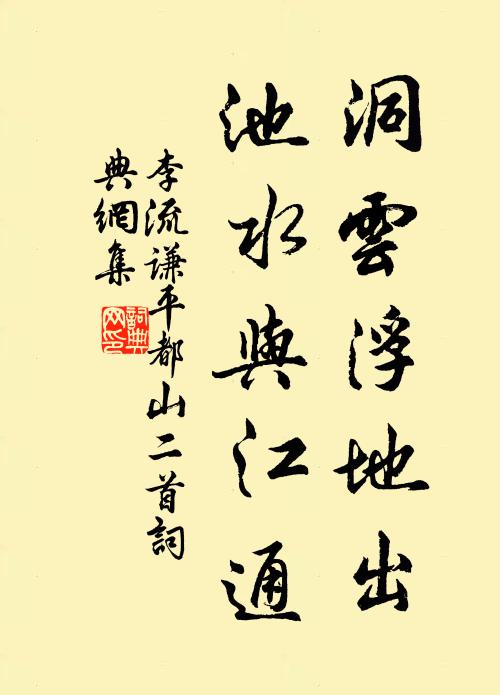 洞雲浮地出
池水與江通
李流謙平都山二首詞
典網集
詞典
网印